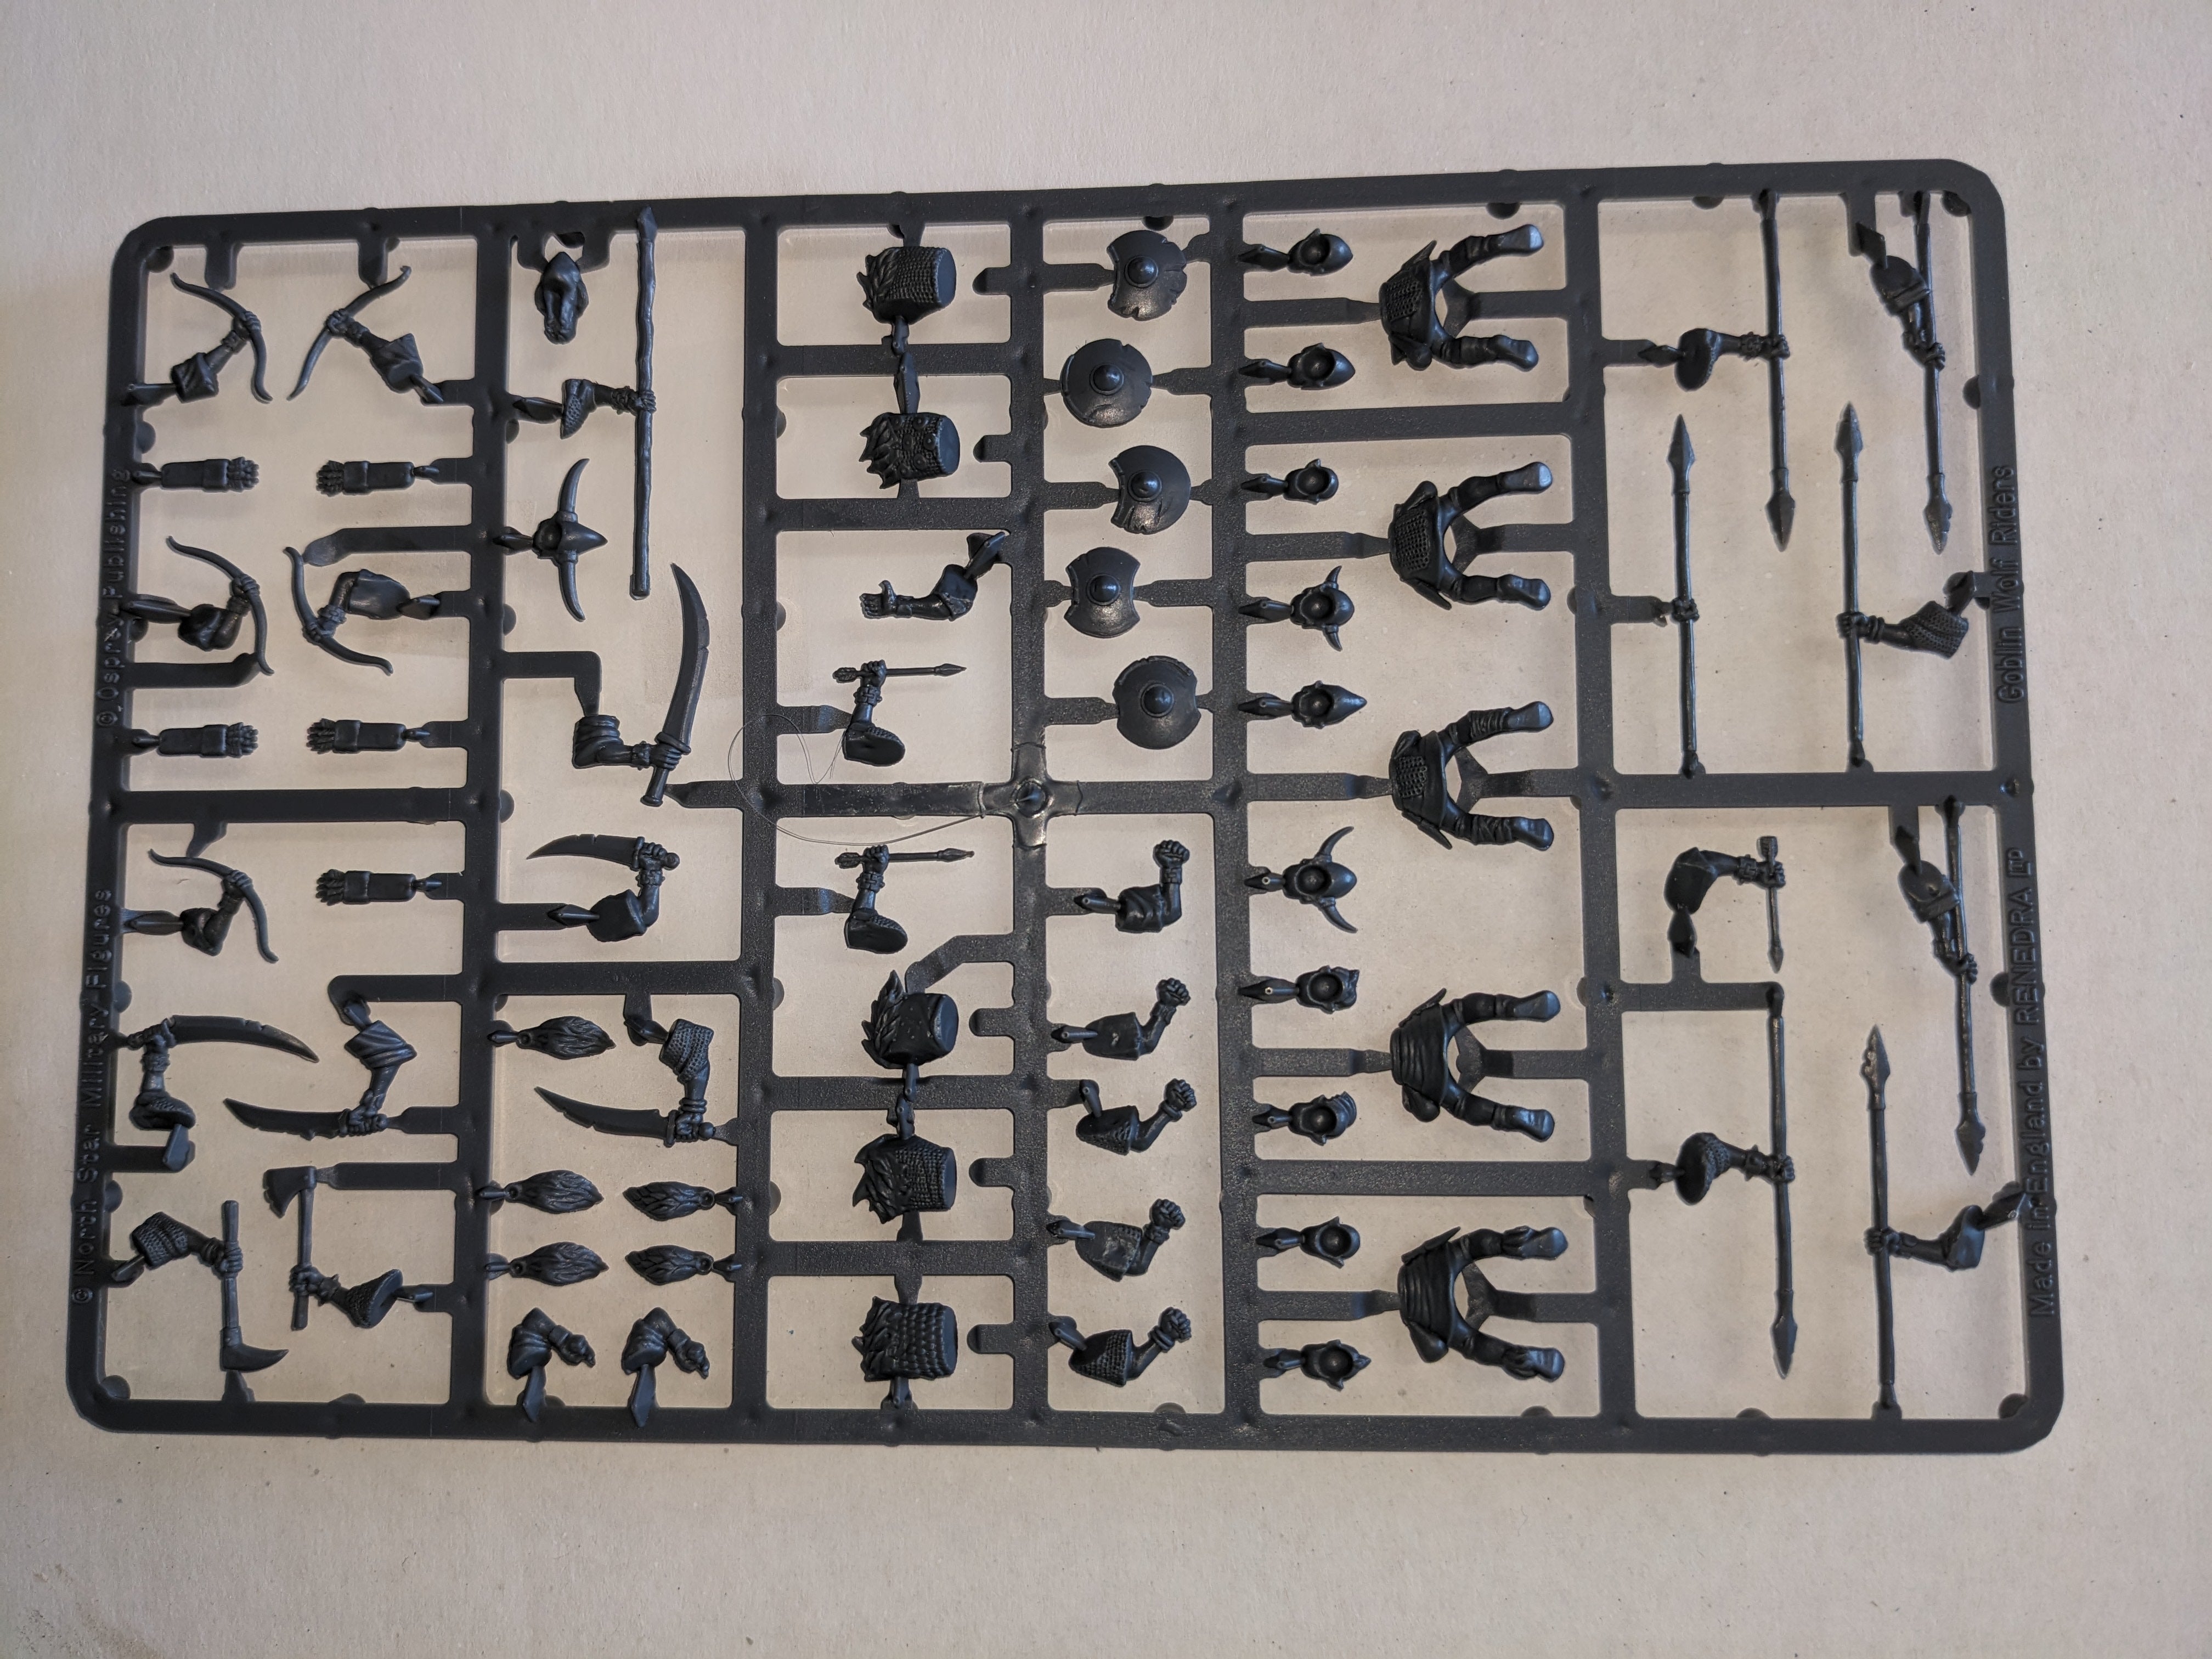 © North Star Military Figures
© Osprey Publishing
Goblin Wolf Riders
Made in England by RENEDRA LTD